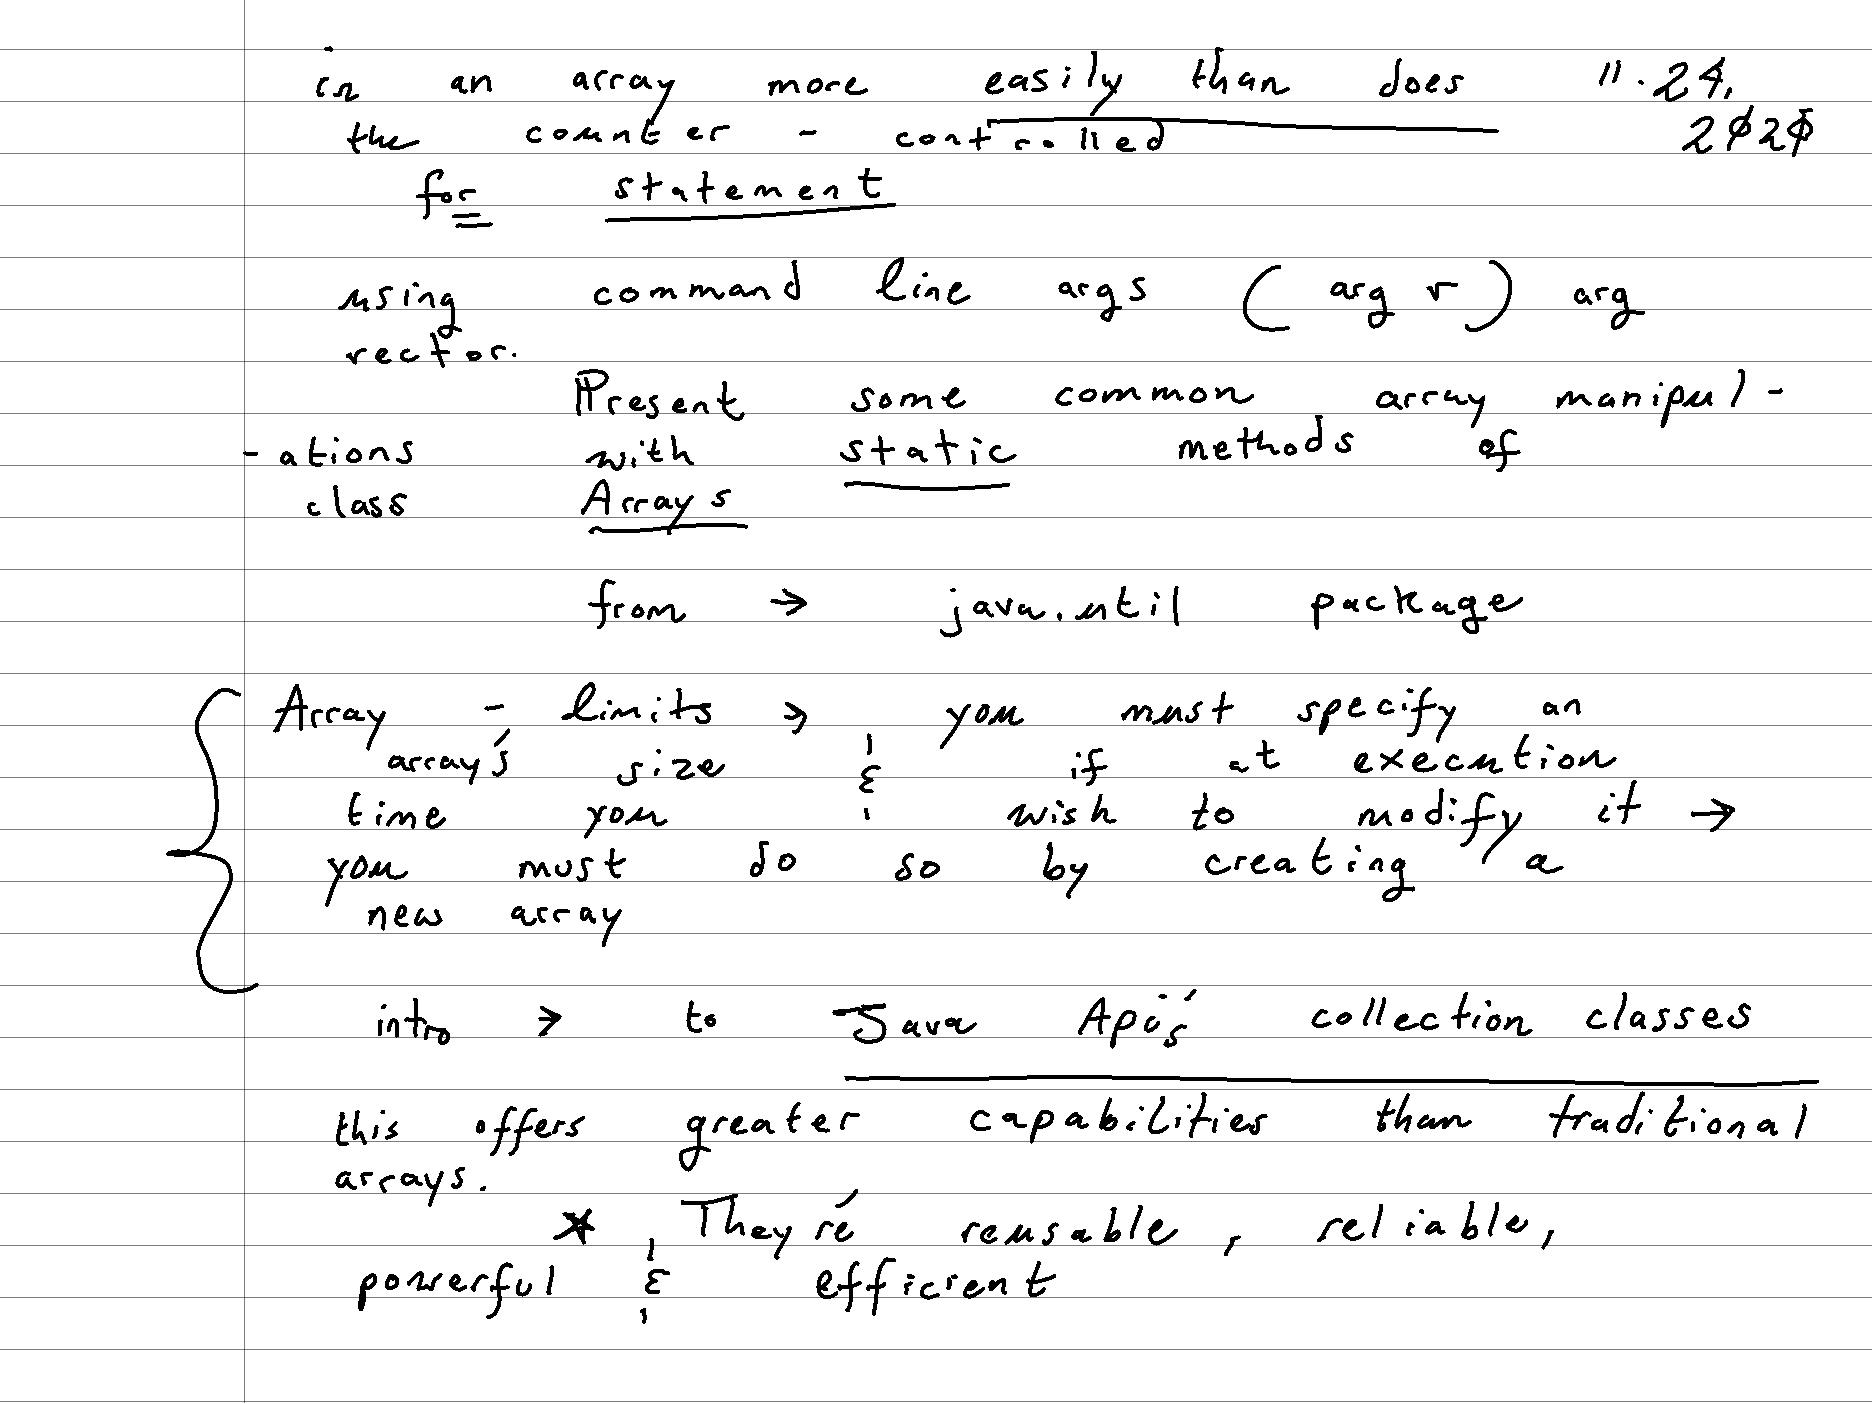 in an array more easily than does 11.24,
the counter - controlled 2020
for statement
using command line args (argv) arg
vector.
Present some common array manipul-
-ations with static methods of
class Arrays
from → java.util package
Array - limits → you must specify an
array's size & if at execution
time you wish to modify it →
you must do so by creating a
new array
intro → to Java Api's collection classes
this offers greater capabilities than traditional
arrays.
* They're reusable, reliable,
powerful & efficient